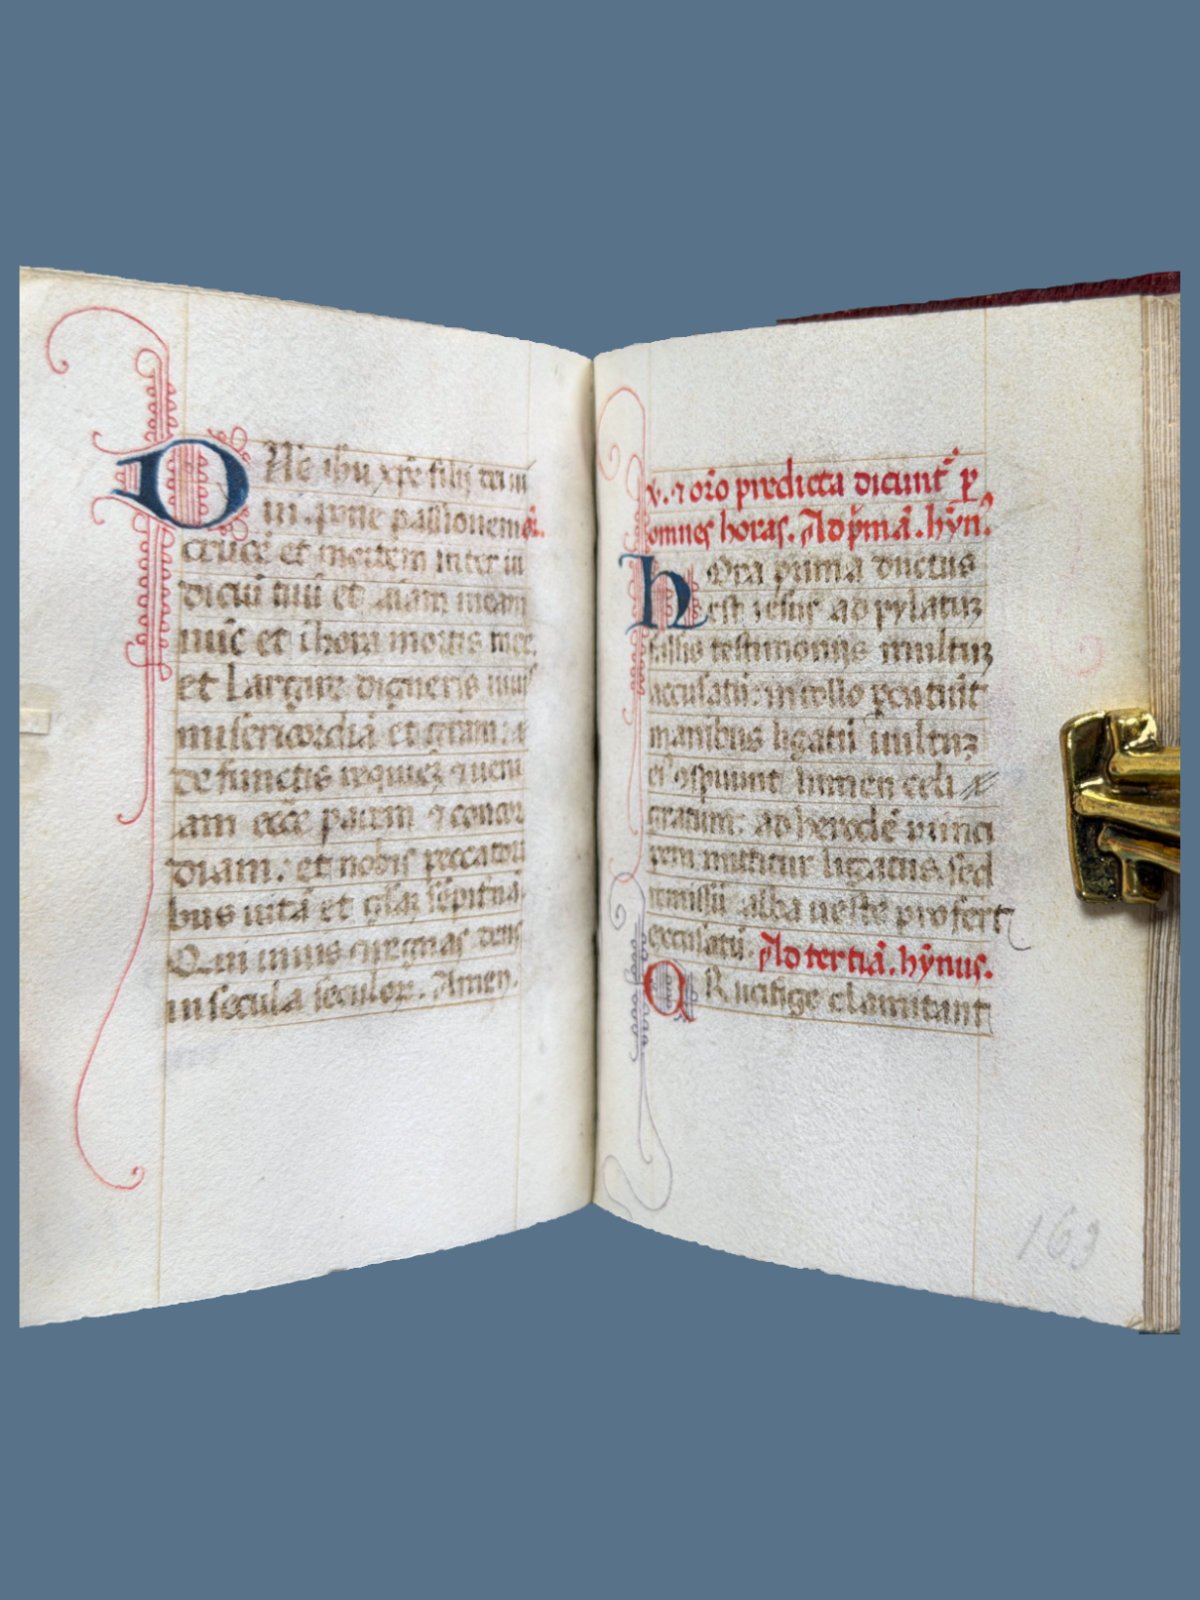 Dñe ihu xpe filij dei ui
ui. pone passionem
crucē et mortem inter iu
diciū tuū et aīam meam
nūc et ī hora mortis mee.
et Largire digneris uiuis
misericordiā et gram:
defunctis requiez ⁊ ueni
am ecce pacem ⁊ concor
diam: et nobis peccatori
bus uitā et glaz sēpit'nā.
Qui uiuis ⁊ regnas deus
in secula seculoꝝ. Amen.
v. ⁊ oro predicta dicunt' p
omnes horas. Ad pmā. hyn.
hOra prima ductus
est yesus ad pylatuz
falsis testimoniis multuz
accusatū: in collo pcutiūt
manibus ligatū uultuz
ei ꝯspuunt lumen celi
gratum: ad herodē uinci
tem mittitur ligatus sed
remissū alba ueste profert
excusatū. Ad tertiā. hynus.
CRucifige clamitant
163